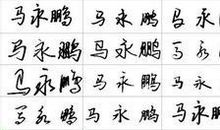 马永鹏 马永鹏 马永鹏
马永鹏 马永鹏 马永鹏
马永鹏 马永鹏 马永鹏
马永鹏 马永鹏 马永鹏